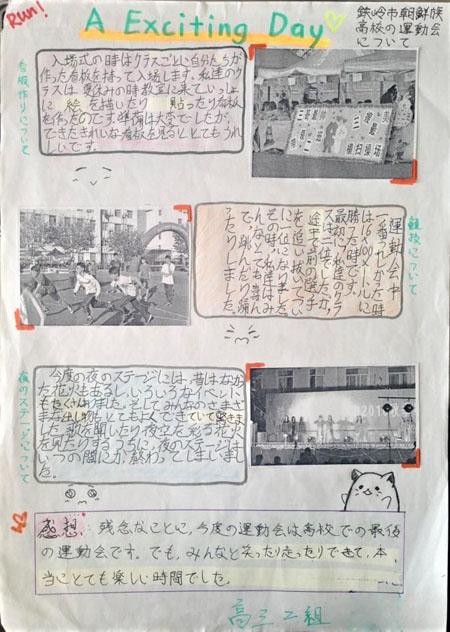 Run!
A Exciting Day
鉄岭市朝鮮族
高校の運動会
について
看板作りについて
入場式の時はクラスごとに自分たちが
作った看板を持って入場します。私達のク
ラスは夏休みの時教室に来ていっしょ
に絵を描いたり 貼ったり看板
を作ったのです。準備は大変でしたが、
できたきれいな看板を見るととてもうれ
しいです。
競技について
運動会中
一番うれしかった時
は16×100リレーに
勝った時です。
最初は、私達のクラ
スは二位でしたが、
途中で前の選手
を追い抜いてつい
に一位になりました。
その時、私達はみ
んなとても喜ん
で、跳んだり踊っ
たりしました。
夜のステージについて
今度の夜のステージには、昔はなかっ
た花火もあるし、いろいろなイベント
もたくさんありました。そしてみんなのたまさ
また出し物もとてもよくできていて驚きま
した。歌を聞いたり夜空を彩る花火
を見たりするうちに、夜のステージは
いつの間にか終わってしまいまし
た。
感想:残念なことに、今度の運動会は高校での最後
の運動会です。でも、みんなと笑ったり走ったりできて、本
当にとても楽しい時間でした。
高三二組